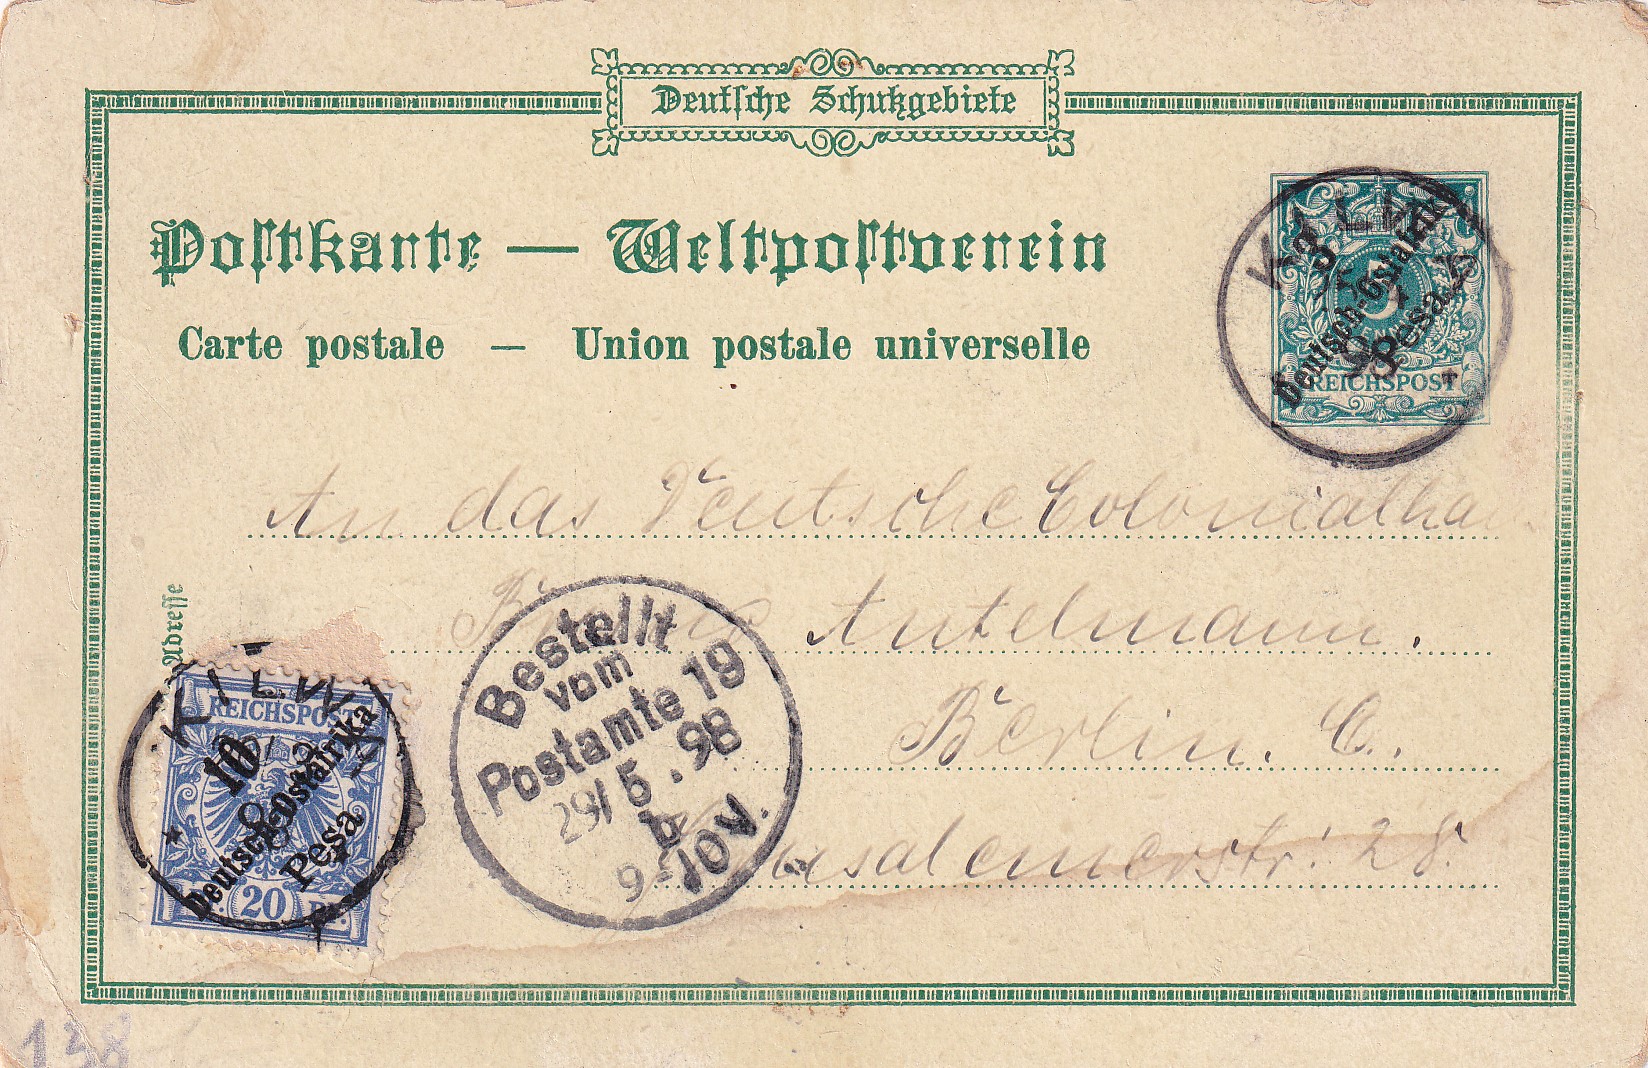 Deutsche Schutzgebiete
Postkarte — Weltpostverein
Carte postale — Union postale universelle
KILWA
98
3 Deutsch-Ostafrika Pesa
5
REICHSPOST
An das Deutsche Colonialhaus
Bruno Antelmann.
Berlin. C.
Jerusalemerstr: 28.
Adresse
KILWA
REICHSPOST
10 Deutsch-Ostafrika Pesa
98
20
Bestellt
vom
Postamte 19
29/5.98
6-
Nor.
138